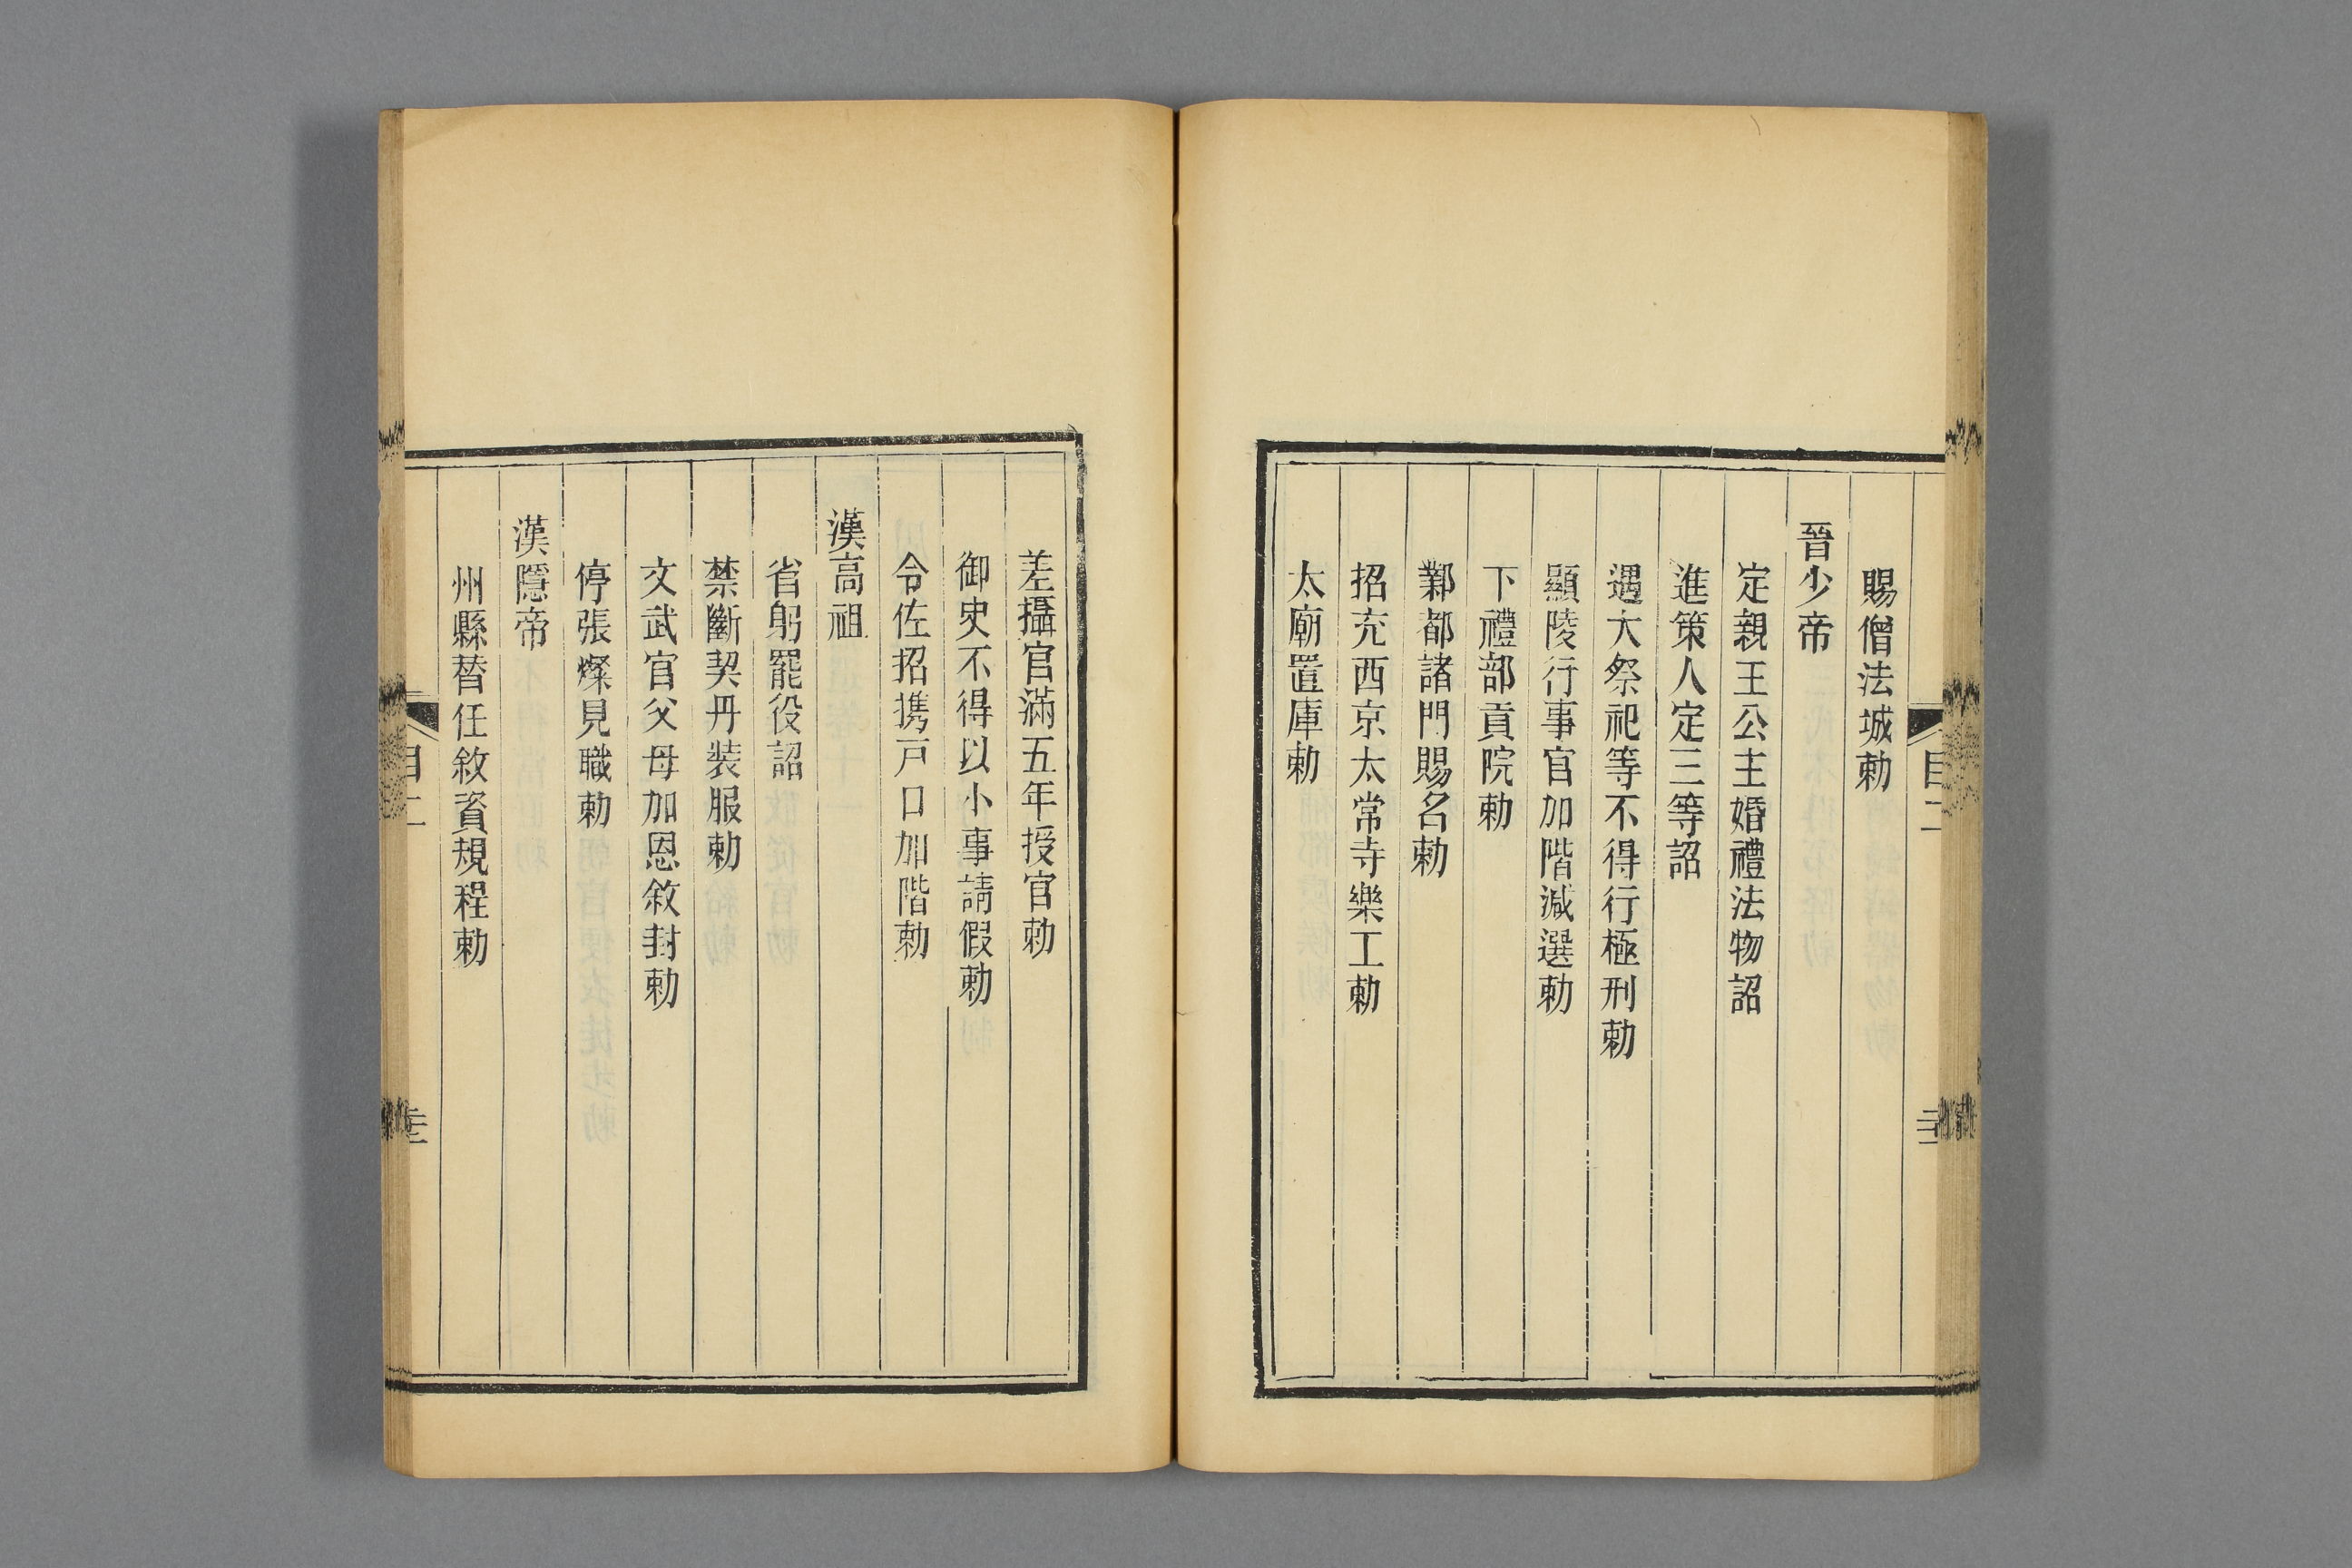 賜僧法城勅
晉少帝
定親王公主婚禮法物詔
進策人定三等詔
遇大祭祀等不得行極刑勅
顯陵行事官加階減選勅
下禮部貢院勅
鄴都諸門賜名勅
招充西京太常寺樂工勅
太廟置庫勅
差攝官滿五年授官勅
御史不得以小事請假勅
令佐招携戸口加階勅
漢高祖
省躬罷役詔
禁斷契丹裝服勅
文武官父母加恩敘封勅
停張燦見職勅
漢隱帝
州縣替任敘資規程勅
目二